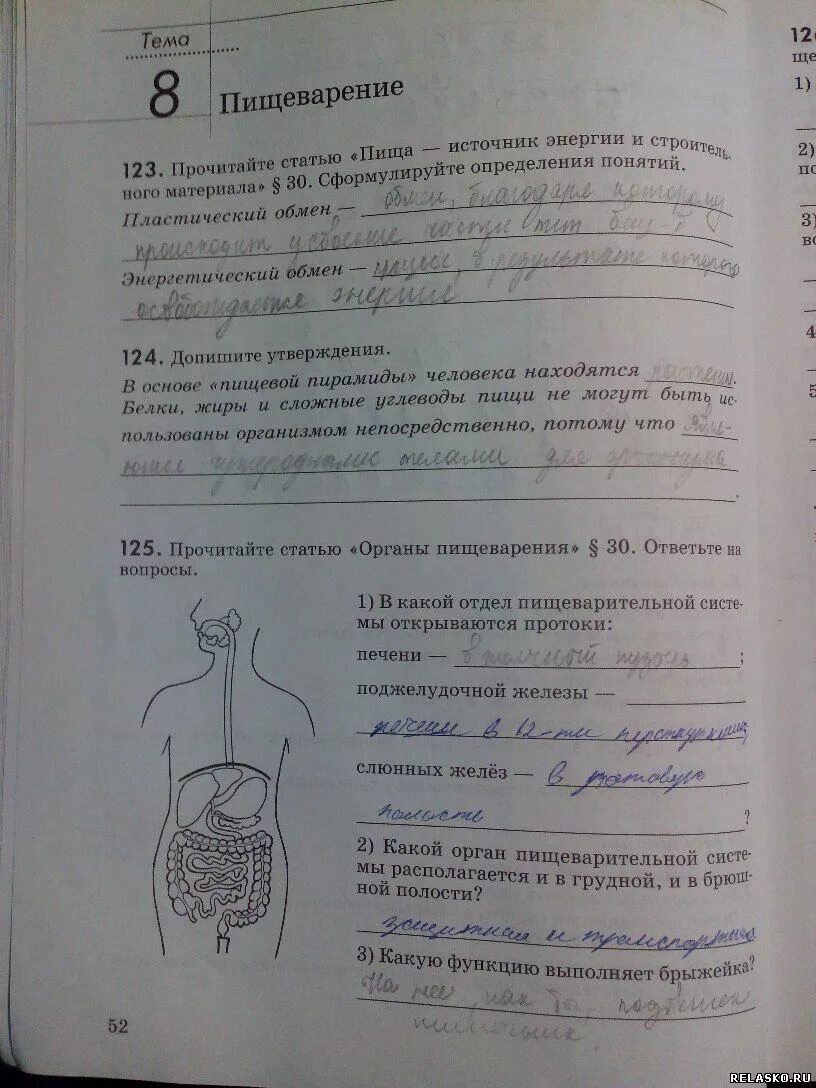 Тема
8 Пищеварение
123. Прочитайте статью «Пища — источник энергии и строитель-
ного материала» § 30. Сформулируйте определения понятий.
Пластический обмен — обмен, благодаря которому
происходит усвоение
Энергетический обмен — процесс, в результате которого
освобождается энергия
124. Допишите утверждения.
В основе «пищевой пирамиды» человека находятся растения.
Белки, жиры и сложные углеводы пищи не могут быть ис-
пользованы организмом непосредственно, потому что явля-
ются чужеродными телами для организма
.
125. Прочитайте статью «Органы пищеварения» § 30. Ответьте на
вопросы.
1) В какой отдел пищеварительной систе-
мы открываются протоки:
печени — в желчный пузырь ;
поджелудочной железы —
в 12-ти перстную
слюнных желёз — в ротовую
полость ?
2) Какой орган пищеварительной систе-
мы располагается и в грудной, и в брюш-
ной полости?
защитная и транспортная
3) Какую функцию выполняет брыжейка?
На ней как бы подвешен
кишечник
52
12
ще
1)
2)
по
3)
во
4
5
RELASKO.RU